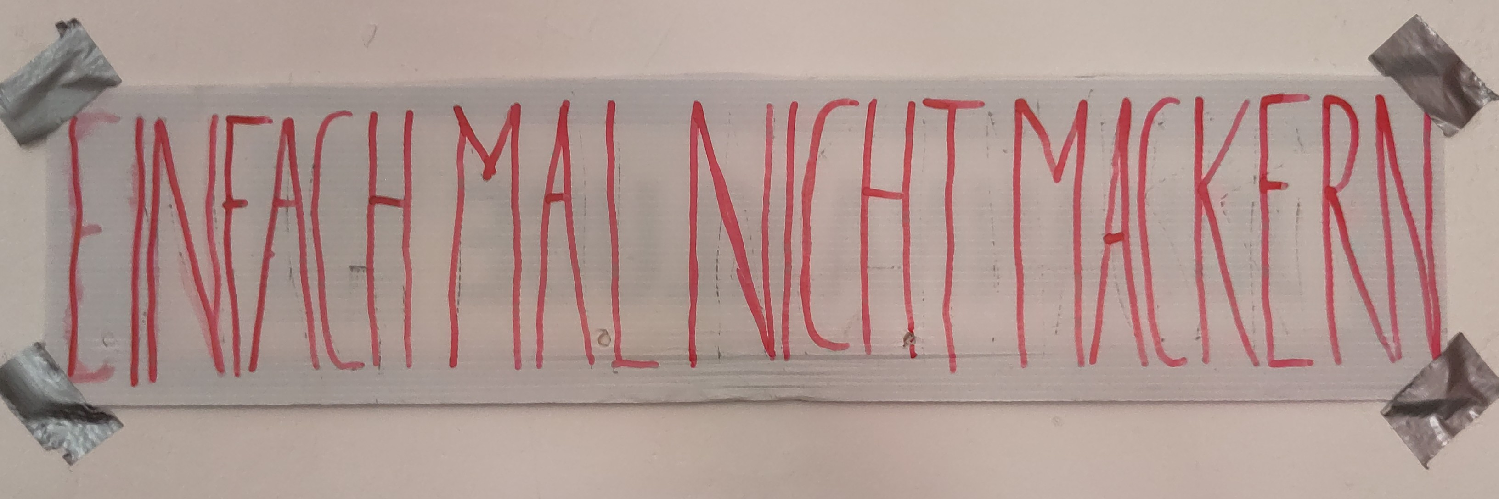 EINFACH MAL NICHT MACKERN